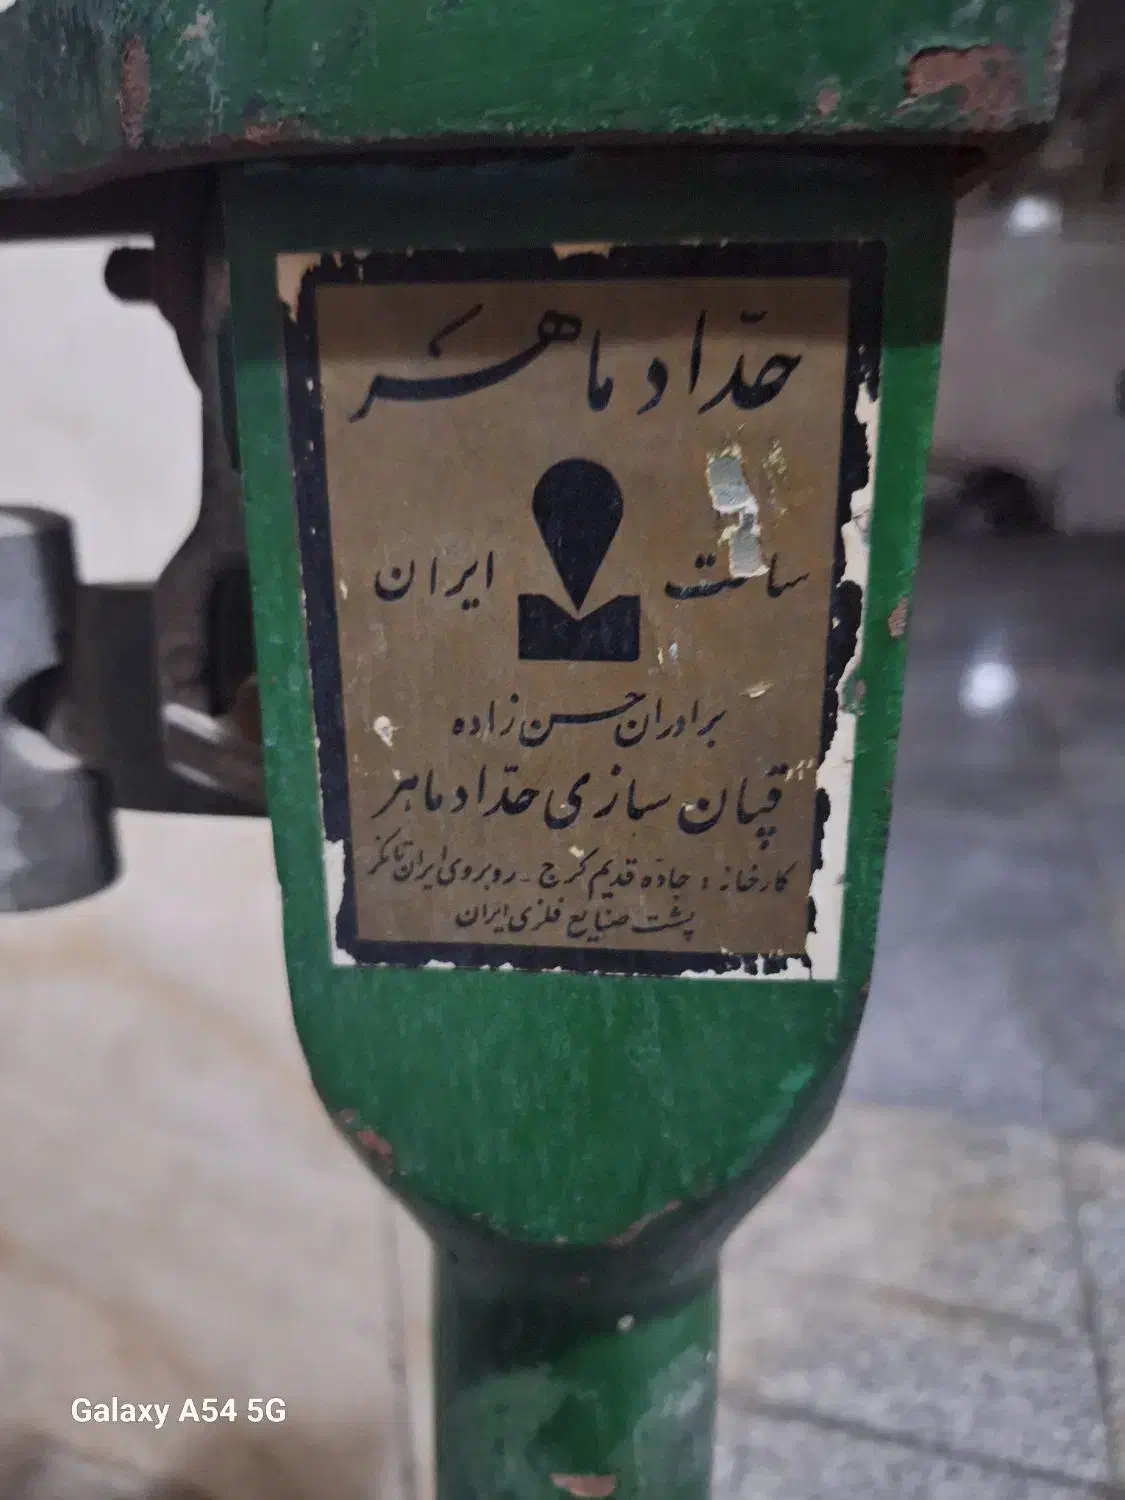 حدّاد ماهَر
ساخت ایران
برادران حسن زاده
قپان سازی حدّاد ماهر
کارخانه : جادّه قدیم کرج - روبروی ایران تانکر
پشت صنایع فلزی ایران
Galaxy A54 5G